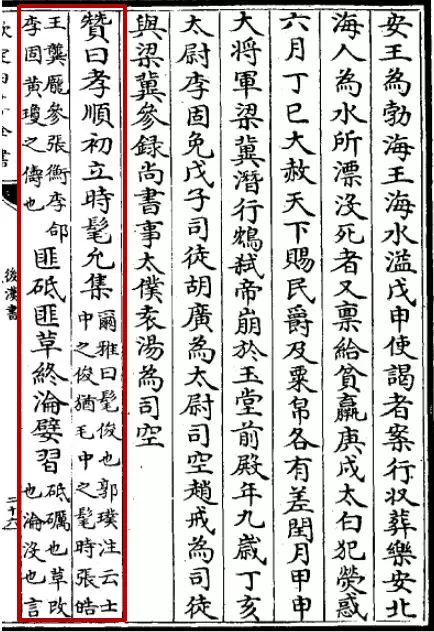 安王為勃海王海水溢戊申使謁者案行收葬樂安北
海人為水所漂没死者又稟給貧羸庚戌太白犯熒惑
六月丁巳大赦天下賜民爵及粟帛各有差閏月甲申
大将軍梁冀潛行鴆弑帝崩於玉堂前殿年九歳丁亥
太尉李固免戊子司徒胡廣為太尉司空趙戒為司徒
與梁冀參録尚書事太僕袁湯為司空
贊曰孝順初立時髦允集
爾雅曰髦俊也郭璞注云士
中之俊猶毛中之髦時張皓
王龔龎參張衡李郃
李固黄瓊之儔也
匪砥匪革終淪嬖習
砥礪也革改
也淪没也言
後漢書
二十六